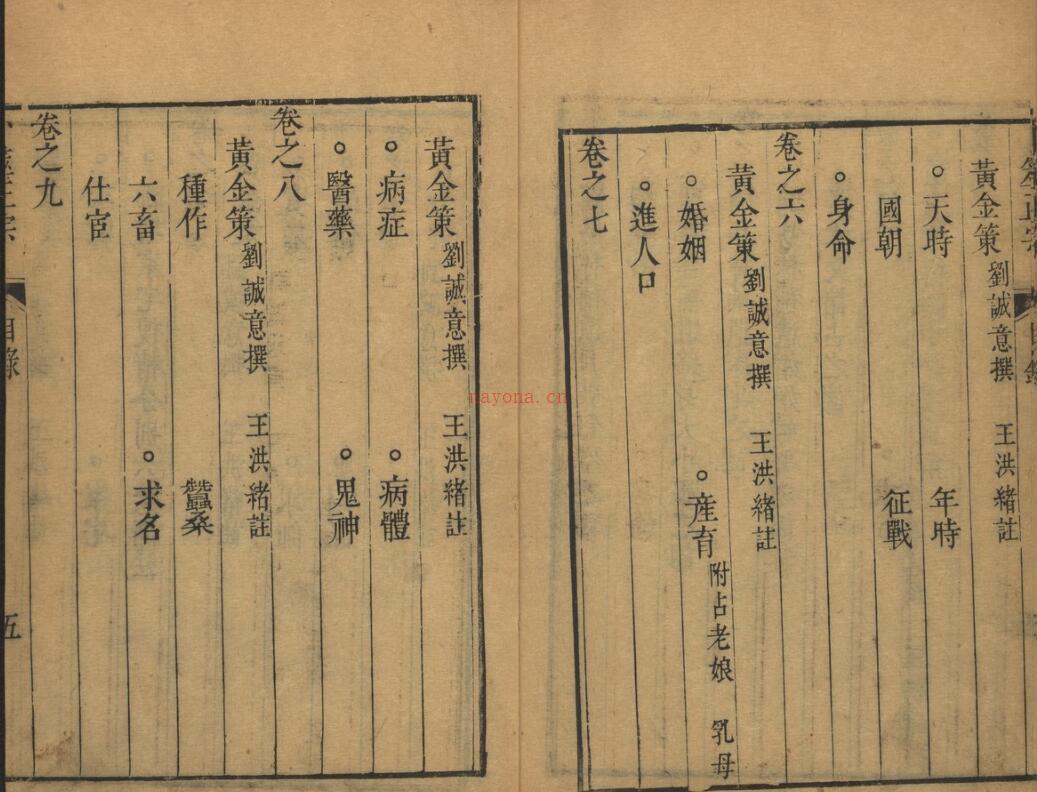 黃金策 劉誠意撰 王洪緒註
。天時 年時
國朝 征戰
。身命
卷之六
黃金策 劉誠意撰 王洪緒註
。婚姻 。産育 附占老娘 乳母
。進人口
卷之七
黃金策 劉誠意撰 王洪緒註
。病症 。病體
。醫藥 。鬼神
卷之八
黃金策 劉誠意撰 王洪緒註
種作 蠶桒
。六畜 。求名
仕宦
卷之九
目錄 五
nayona.cn